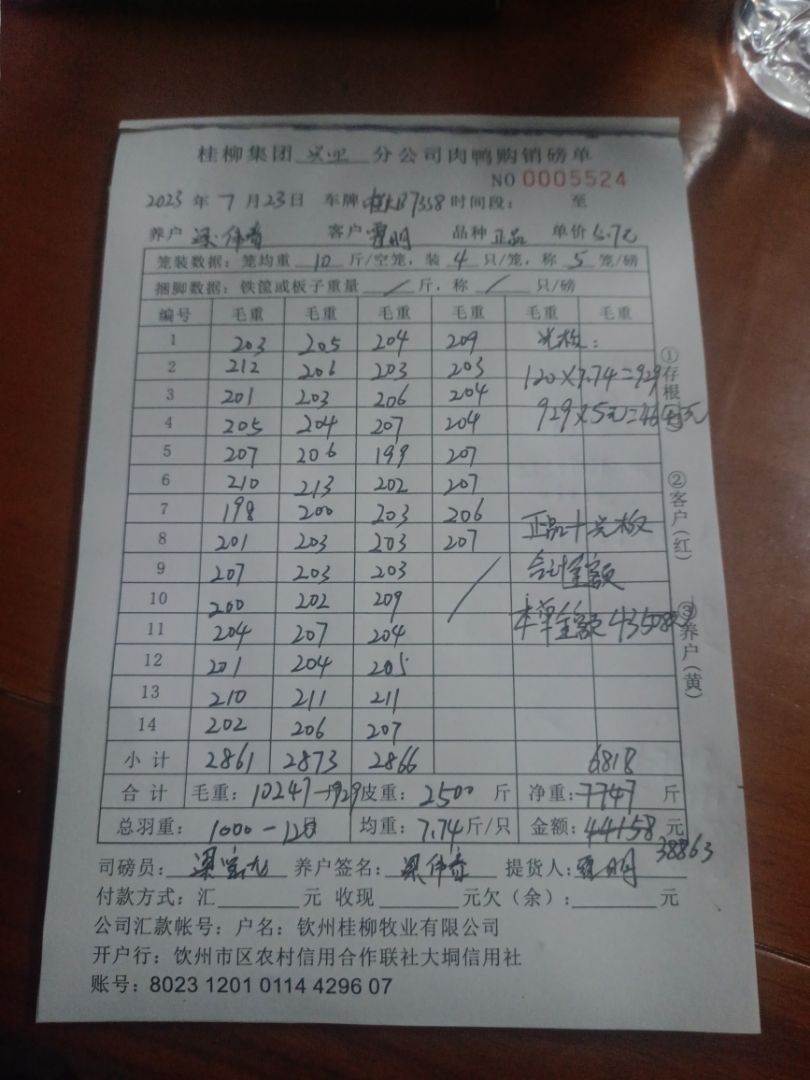 桂柳集团 分公司肉鸭购销磅单
NO 0005524
2023 年 7 月 23 日 车牌 7358 时间段： 至
养户 梁伟奇 客户 覃明 品种 正品 单价 5.7元
笼装数据：笼均重 10 斤/空笼，装 4 只/笼，称 5 笼/磅
捆脚数据：铁筐或板子重量 / 斤，称 / 只/磅
编号 毛重 毛重 毛重 毛重 毛重 毛重
1 203 205 204 209 光板：
2 212 206 203 203 120×7.74=929
3 201 203 206 204
4 205 204 207 204 929×5元=4645元
5 207 206 199 207
6 210 213 202 207
7 198 200 203 206
8 201 203 203 207 正品十光板
9 207 203 203 / 合计金额
10 200 202 209
11 204 207 204 本单金额 43508元
12 201 204 205
13 210 211 211
14 202 206 207
小计 2861 2873 2866 6818
合计 毛重：10247-929 皮重：2500 斤 净重：7747 斤
总羽重：1000-120 均重：7.74斤/只 金额：44158 元
38863
司磅员： 养户签名：梁伟奇 提货人：覃明
付款方式：汇 元 收现 元欠（余）： 元
公司汇款帐号：户名：钦州桂柳牧业有限公司
开户行：钦州市区农村信用合作联社大垌信用社
账号：8023 1201 0114 4296 07
①存根
②客户（红）
③养户（黄）